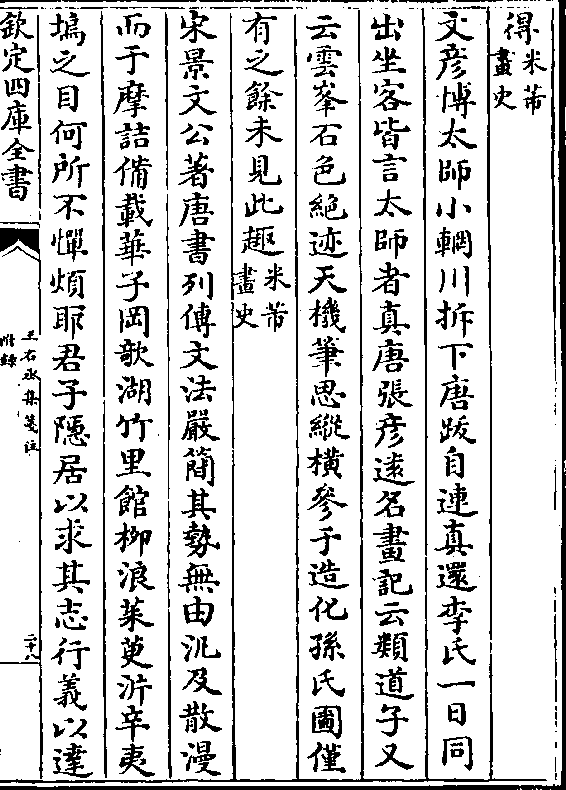 得米芾畫史
文彦博太師小輞川拆下唐跋自連真還李氏一日同
出坐客皆言太師者真唐張彦逺名畫記云類道子又
云雲峯石色絶迹天機筆思縱橫參于造化孫氏圖僅
有之餘未見此趣米芾畫史
宋景文公著唐書列傳文法嚴簡其勢無由汎及散漫
而于摩詰備載華子岡欹湖竹里館栁浪茱萸沜辛夷
塢之目何所不憚煩耶君子隠居以求其志行義以達
欽定四庫全書
王右丞集箋注
附錄
二十八